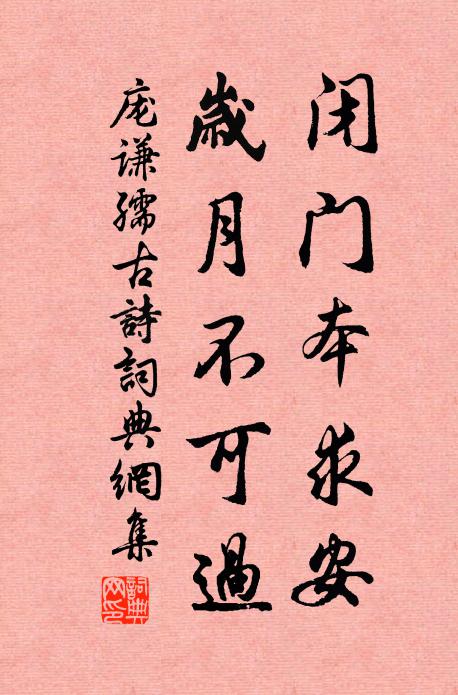 闭门本求安
歲月不可過
庞谦孺古詩詞典網集
詞典网印